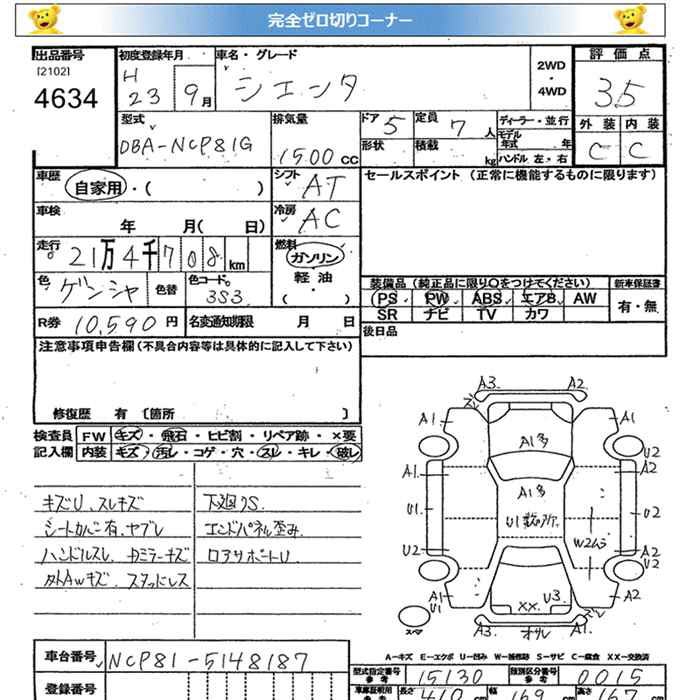 完全ゼロ切りコーナー
出品番号 初度登録年月 車名・グレード 2WD・4WD 評価点
[2102]
4634 H 23 9月 シエンタ 3.5
型式 排気量 ドア 5 定員 7人 ディーラー・並行 外装 内装
DBA-NCP81G 1500cc 形状 積載 kg モデル年式 年 C C
ハンドル 左・右
車歴 自家用・( ) シフト AT セールスポイント (正常に機能するものに限ります)
車検 年 月( 日) 冷房 AC
走行 21万4千708km 燃料 ガソリン
軽油
・( )
色 ゲンシャ 色替 色コード 3S3 装備品 (純正品に限り○をつけてください) 新車保証書
PS PW ABS エアB AW 有・無
SR ナビ TV カワ
R券 10,590円 名変通知期限 月 日 後日品
注意事項申告欄 (不具合内容等は具体的に記入して下さい)
修復歴 有 〔箇所 〕
検査員 FW キズ・飛石・ヒビ割・リペア跡・×要
記入欄 内装 キズ・汚レ・コゲ・穴・スレ・キレ・破レ
キズU、スレキズ 下廻りS
シートカバー有、ヤブレ エンドパネル歪み
ハンドルスレ、Fミラーキズ ロアサポートU
外AWキズ スタッドレス
A3 A2
ズレ
A1 A1
A1多 U2
A1 A2
A1多
U1 U1数ヶ所 U2
W2ムラ
U2 A2
U2
A1 XX U3 A1
U1 ズレ
スペア A3 オサレ A1
A-キズ E-エクボ U-凹み W-補修跡 S-サビ C-腐食 XX-交換済
車台番号 NCP81-5148187
型式指定番号 参考 15130 類別区分番号 参考 0015
登録番号 車庫証明用 参考 長さ 410cm 幅 169cm 高さ 167cm